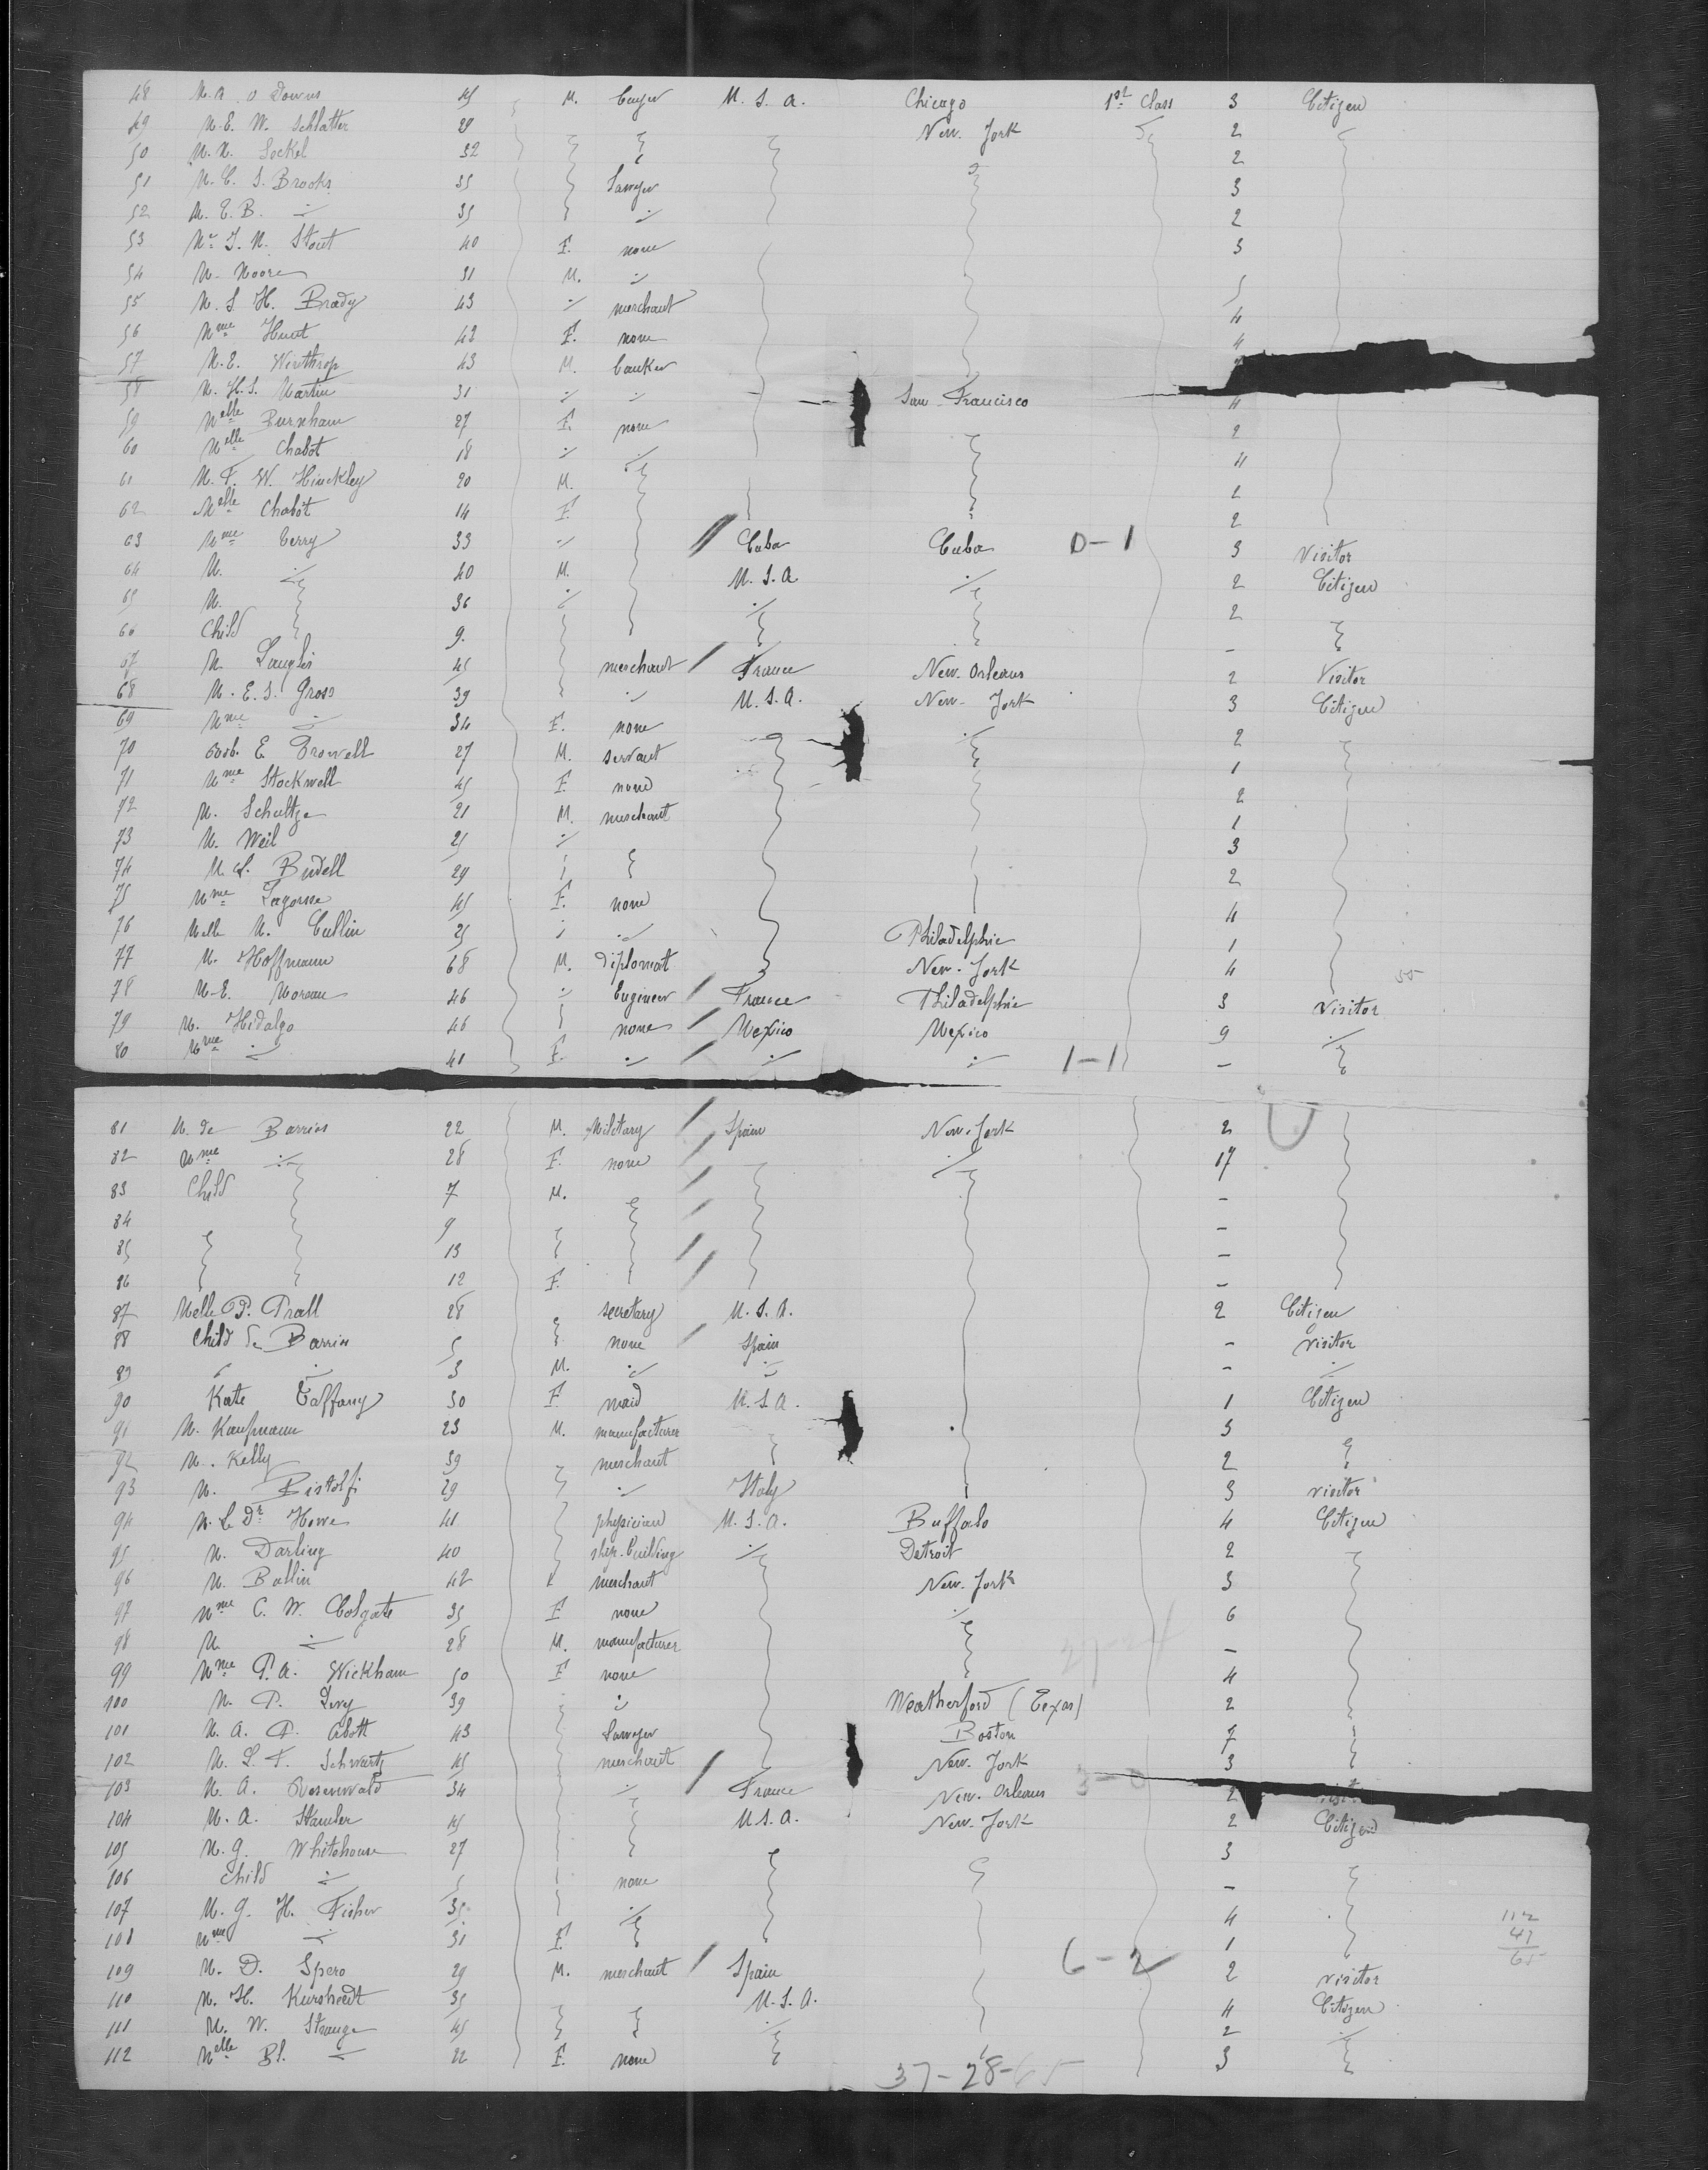 48 M. A. O Downs 45 M. buyer U. S. A. Chicago 1st Class 3 Citizen
49 M. E. W. Schlatter 29 New. York 2
50 M. N. 32 2
51 M. C. S. Brooks 35 Lawyer 3
52 M. E. B. ./. 35 ./. 2
53 Mme J. N. Stout 40 F. none 3
54 M. Moore 31 M. ./. 5
55 M. S. H. Brady 43 ./. merchant 4
56 Mme Hunt 42 F. none 4
57 M. E. Winthrop 43 M. banker
58 M. H. S. Martin 31 ./. ./. San Francisco 4
59 Melle Burnham 27 F. none 2
60 Melle Chabot 18 ./. ./. 4
61 M. F. W. Hinckley 20 M. 2
62 Melle Chabot 14 F. 2
63 Mme Terry 33 ./. Cuba Cuba 0-1 3 Visitor
64 M. ./. 40 M. U. S. A. ./. 2 Citizen
65 M. 36 ./. ./. 2
66 Child 9. -
67 M. 45 merchant France New. Orleans 2 Visitor
68 M. E. S. Gross 39 ./. U. S. A. New. York 3 Citizen
69 Mme ./. 34 F. none ./. 2
70 Rob. E. Browell 27 M. servant 1
71 Mme Stockwell 45 F. none 2
72 M. Schultze 21 M. merchant 1
73 M. Weil 25 ./. 3
74 M. L. Budell 29 2
75 Mme 45 F. none 4
76 Melle M. Cullin 25 ./. Philadelphie 1
77 M. Hoffmann 68 M. diplomat New. York 4 55
78 M. E. Moreau 46 ./. Engineer France Philadelphie 3 Visitor
79 M. Hidalgo 46 none Mexico Mexico 9 ./.
80 Mme ./. 41 F. ./. ./. ./. 1-1 -
81 M. de Barrios 22 M. Military Spain New. York 2
82 Mme ./. 28 F. none ./. 17
83 Child 7 M. -
84 9 -
85 13 -
86 12 F. -
87 Melle P. Prall 28 secretary U. S. A. 2 Citizen
88 Child de Barrios 5 none Spain - visitor
89 3 M. ./. ./. - ./.
90 Kate Taffany 30 F. maid U. S. A. 1 Citizen
91 M. Kaufmann 23 M. manufacturer 3
92 M. Kelly 39 merchant 2
93 M. Bistolfi 29 ./. Italy 3 visitor
94 M. Le Dr Howe 41 physician U. S. A. Buffalo 4 Citizen
95 M. Darling 40 ship-building ./. Detroit 2
96 M. Ballin 42 merchant New. York 3
97 Mme C. W. Colgate 35 F. none ./. 6
98 M. ./. 28 M. manufacturer -
99 Mme P. A. Wickham 50 F. none 4
100 M. P. Levy 39 ./. Weatherford (Texas) 2
101 M. A. P. Abott 43 Lawyer Boston 7
102 M. L. F. Schwartz 45 merchant New. York 3
103 M. A. Rosenwald 34 ./. France New. Orleans 3-0 2
104 M. A. Stamler 45 U. S. A. New. York 2 Citizen
105 M. G. Whitehouse 27 3
106 child ./. 5 none -
107 M. G. H. Fisher 35 ./. 4
108 Mme ./. 31 F. 1
109 M. D. Spero 29 M. merchant Spain 6-2 2 visitor
110 M. H. Kursheedt 35 U. S. A. 4 Citizen
111 M. W. Strange 45 ./. 2 ./.
112 Melle Bl. ./. 22 F. none 3
112
47
65
37-28-65